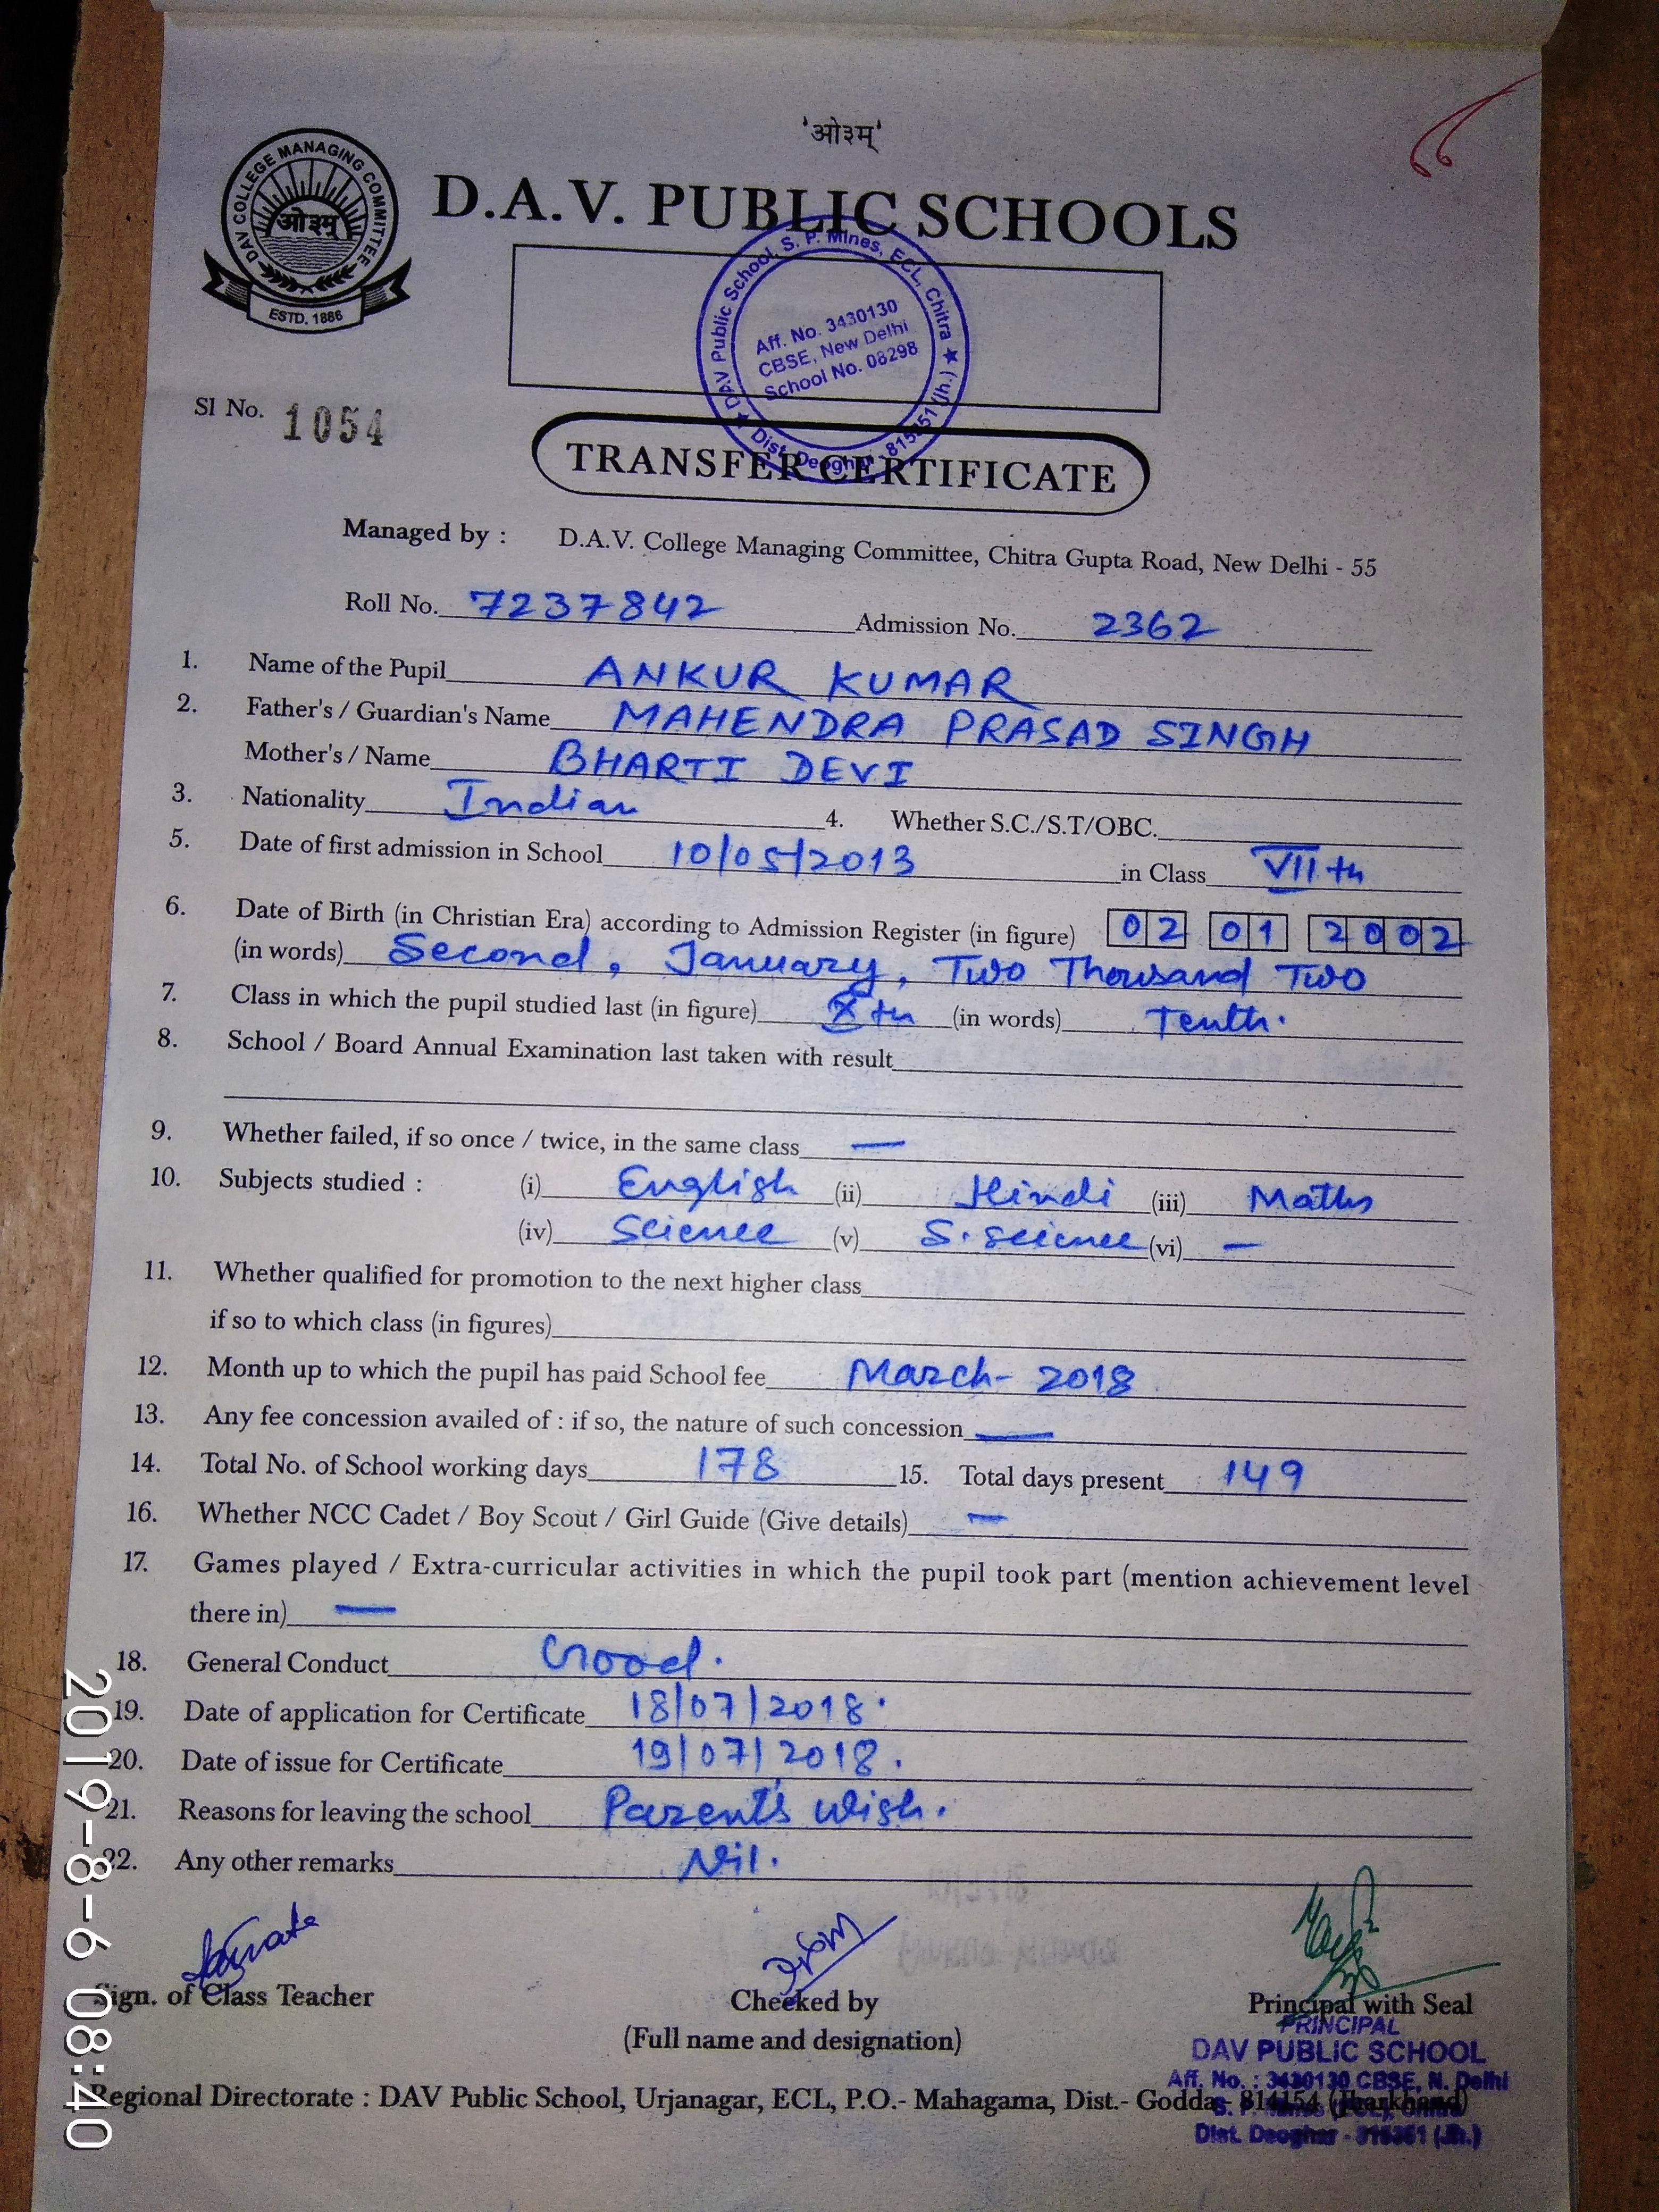 'ओ३म्'
DAV COLLEGE MANAGING COMMITTEE
ओ३म्
ESTD. 1886
D.A.V. PUBLIC SCHOOLS
DAV Public School, S. P. Mines, ECL, Chitra ★ Dist. Deoghar (Jh.) ★
Aff. No. 3430130
CBSE, New Delhi
School No. 08298
Sl No. 1054
TRANSFER CERTIFICATE
Managed by : D.A.V. College Managing Committee, Chitra Gupta Road, New Delhi - 55
Roll No. 7237842 Admission No. 2362
1. Name of the Pupil ANKUR KUMAR
2. Father's / Guardian's Name MAHENDRA PRASAD SINGH
Mother's / Name BHARTI DEVI
3. Nationality Indian 4. Whether S.C./S.T/OBC.
5. Date of first admission in School 10/05/2013 in Class VIIth
6. Date of Birth (in Christian Era) according to Admission Register (in figure) 02 01 2002
(in words) Second, January, Two Thousand Two
7. Class in which the pupil studied last (in figure) Xth (in words) Tenth.
8. School / Board Annual Examination last taken with result
9. Whether failed, if so once / twice, in the same class —
10. Subjects studied : (i) English (ii) Hindi (iii) Maths
(iv) Science (v) S. Science (vi) —
11. Whether qualified for promotion to the next higher class
if so to which class (in figures)
12. Month up to which the pupil has paid School fee March- 2018
13. Any fee concession availed of : if so, the nature of such concession —
14. Total No. of School working days 178 15. Total days present 149
16. Whether NCC Cadet / Boy Scout / Girl Guide (Give details) —
17. Games played / Extra-curricular activities in which the pupil took part (mention achievement level
there in) —
18. General Conduct Good.
19. Date of application for Certificate 18/07/2018.
20. Date of issue for Certificate 19/07/2018.
21. Reasons for leaving the school Parent's wish.
22. Any other remarks Nil.
Sign. of Class Teacher Checked by Principal with Seal
(Full name and designation)
PRINCIPAL
DAV PUBLIC SCHOOL
Aff. No. : 3430130 CBSE, N. Delhi
Regional Directorate : DAV Public School, Urjanagar, ECL, P.O.- Mahagama, Dist.- Godda - 814154 (Jharkhand)
Dist. Deoghar - 815351 (Jh.)
2019-8-6 08:40